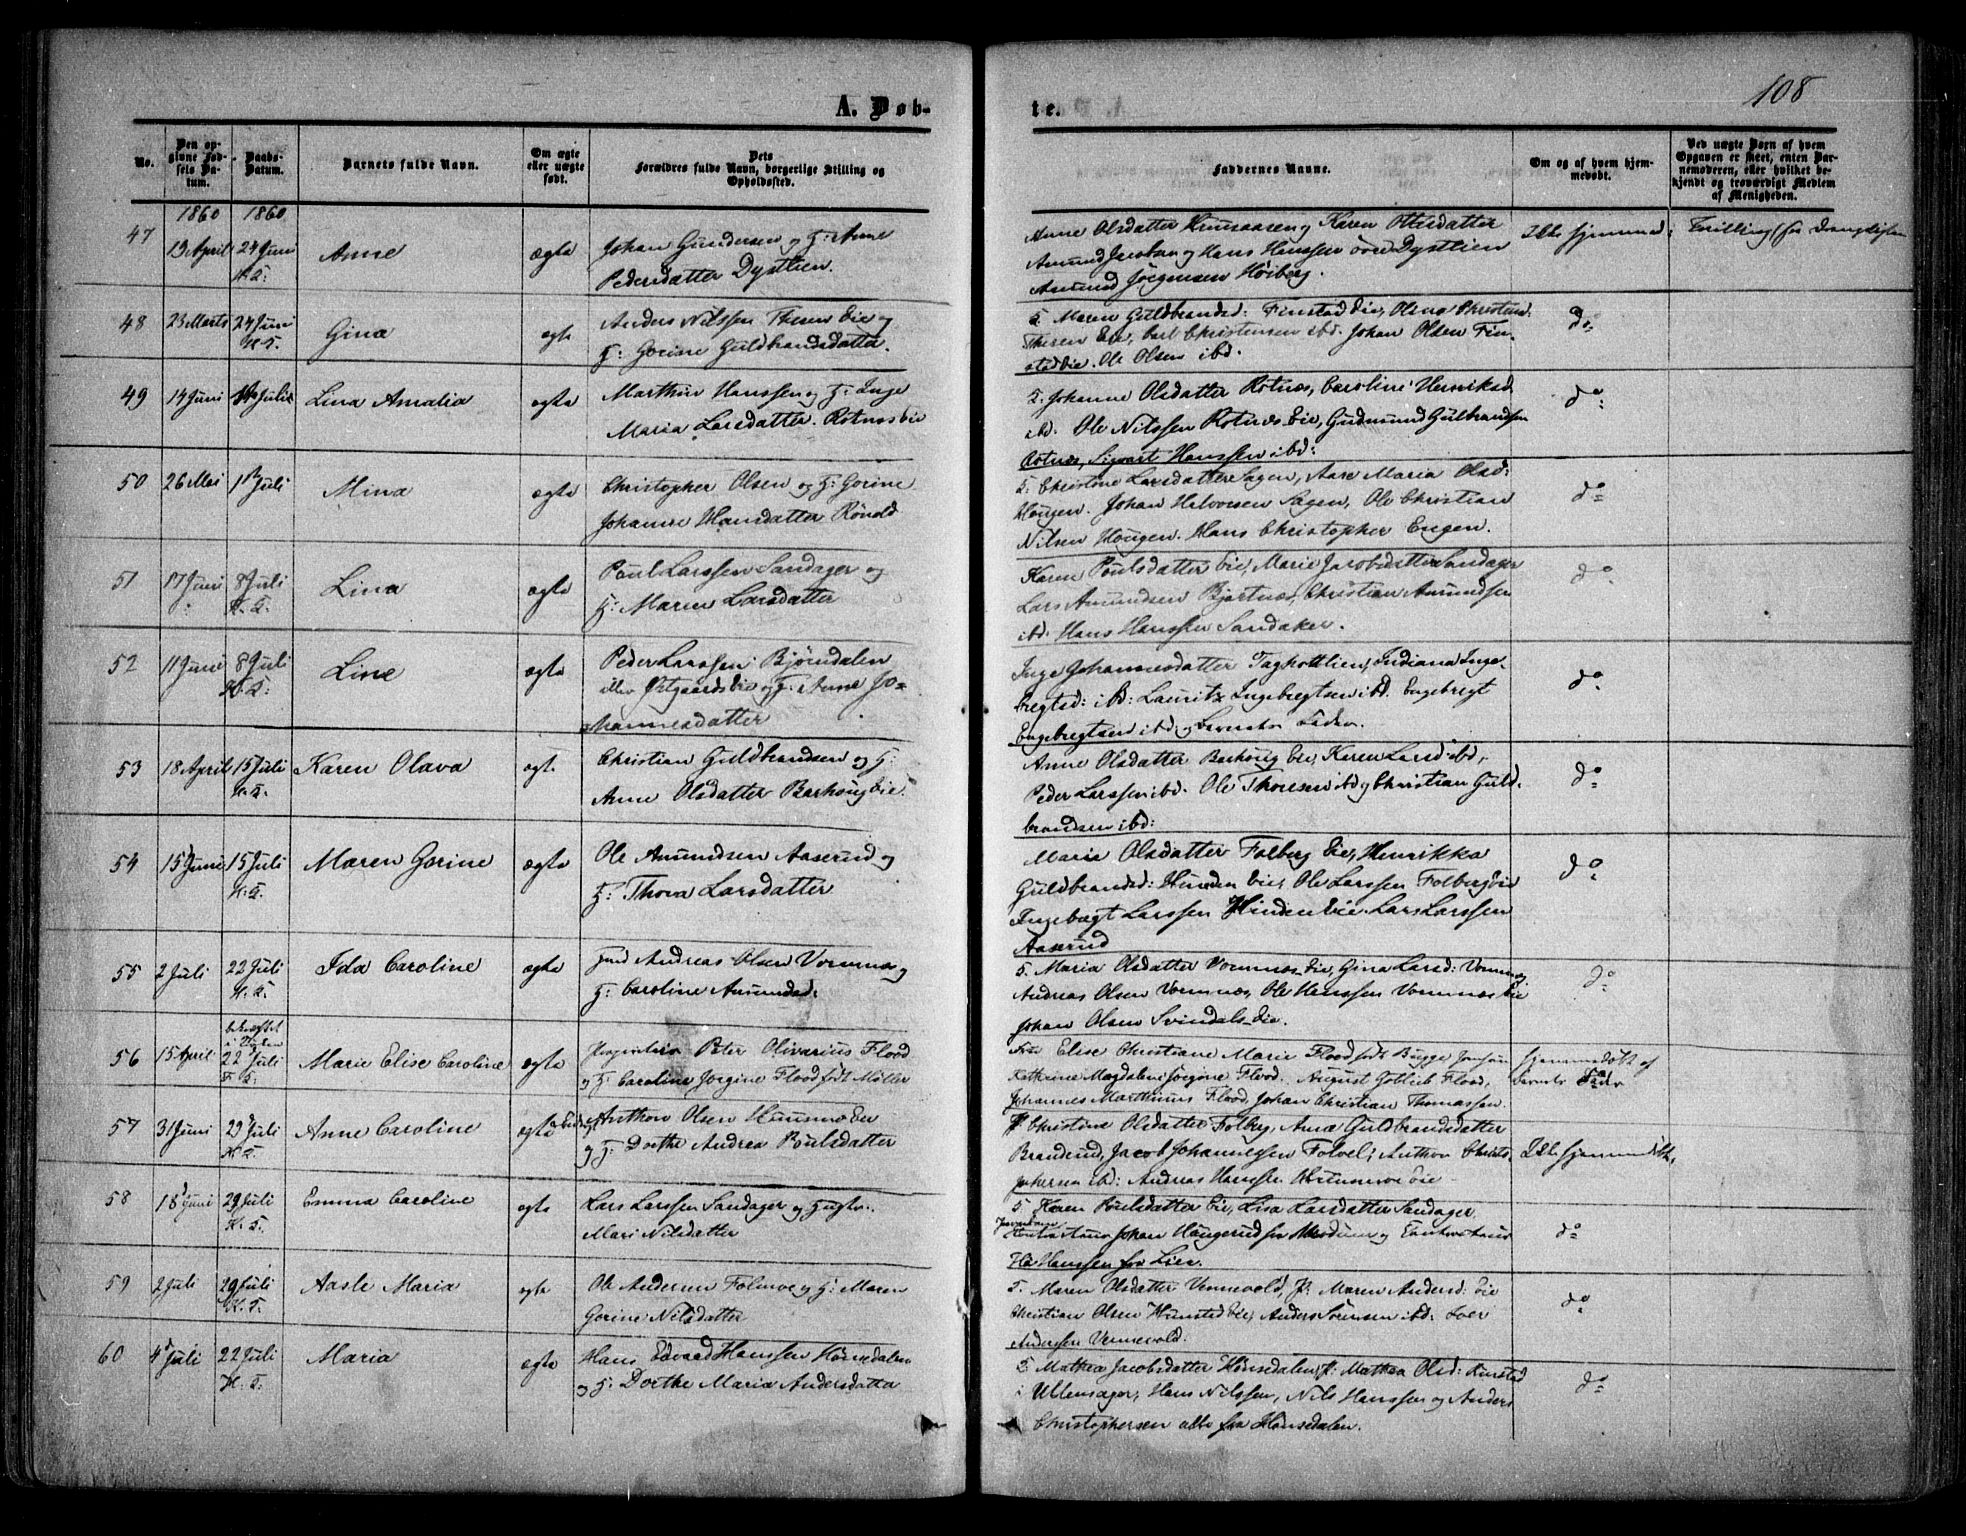 108
A. Døb-
te.
No.
Den op-
givne Fød-
sels Da-
tum.
Daabs-
Datum.
Barnets fulde Navn.
Om ægte
eller uægte
født.
Dets
Forældres fulde Navn, borgerlige Stilling og
Opholdssted.
Faddernes Navne.
Om og af hvem hjem-
medøbt.
Ved uægte Børn af hvem
Opgaven er skeet, enten Bar-
nemoderen, eller hvilket be-
kjendt og troværdigt Medlem
af Menigheden.
1860 1860
47 19 April 24 Juni K. T. Anne ægte
Johan Gundersen og H: Anne
Pedersdatter Dystlien.
Anne Olsdatter Karen Ottesdatter
Amund Jacobsen og Hans Hanssen øvre Dystlien
Amund Jørgensen Høiberg.
Ikke hjemmed:
48 23 Marts 24 Juni K. T. Gina ægte
Anders Nilssen Thesen Eie og
H: Gorine Guldbrandsdatter.
5. Maren Guldbrandsd: Finstad Eie, Olena Christens.
Thesen Eie, Carl Christensen ibd. Johan Olsen Fin-
stadeie. Ole Olsen ibd.
do
49 14 Juni Juli Lina Amalia ægte
Marthin Hanssen og H: Inge
Maria Larsdatter. Rotnes eie
5. Johanne Olsdatter Rotnæs, Caroline Henriksd
ibd. Ole Nilssen Rotnes Eie, Gudmund Gulbrandsen
Rotnæs, Sigvart Hanssen ibd:
do
50 26 Mai 1 Juli Mina ægte
Christopher Olsen og H: Gorine
Johanne Hansdatter Rönold
5. Christine Larsdatter Sagen, Aase Maria Olsd:
Hougen. Johan Halvorsen Sagen, Ole Christian
Nilsen Hougen. Hans Christopher Engen.
do
51 17 Juni 8 Juli K. T. Lina ægte
Poul Larssen Sandager og
H: Maren Larsdatter
Karen Poulsdatter Eie, Marie Jacobsdatter Sandager
Lars Amundsen Bjørtnæs, Christian Amundsen
ibd. Hans Hanssen Sandaker.
do
52 11 Juni 8 Juli K. T. Line ægte
Peder Larssen Bjørndalen
eller Østgaardseie og H: Anne Jo-
hannesdatter
Inge Johannesdatter Indiana Inge-
bregtsd: ibd: Lauritz Ingebregtsen ibd. Engebregt
Engebregtsen ibd. og Barnets Fader.
do
53 18 April 15 Juli K. T. Karen Olava ægt.
Christian Guldbrandsen og H:
Anne Olsdatter Barhougeie.
Anne Olsdatter Barhoug Eie, Karen Larsd ibd,
Peder Larssen ibd. Ole Thoresen ibd og Christian Guld-
brandsen ibd:
do
54 15 Juni 15 Juli K. T. Maren Gorine ægte
Ole Amundsen Aaserud og
H: Thora Larsdatter
Maria Olsdatter Folberg Eie, Henrikka
Guldbrandsd: Hinden Eie, Ole Larssen Folbergeie
Ingebregt Larssen Hinden Eie. Lars Larssen
Aaserud
do
55 2 Juli 22 Juli K. T. Ida Caroline ægte
Andreas Olsen Vormnæs og
H: Caroline Amundsd:
5. Maria Olsdatter Vormnæs Eie, Gina Larsd: Vormnæs
Andreas Olsen Vormnæs, Ole Hanssen Vormnæs Eie
Johan Olsen Svindals Eie.
do
56 15 April bekræftet i Kirken 22 Juli Marie Elise Caroline ægte
Peter Olivarius Flood
og H: Caroline Jørgine Flood født Møller
Fru Elise Christiane Marie Flood født Bugge, Jomfru
Kathrine Magdalene Jørgine Flood. August Gotlieb Flood,
Johannes Marthinus Flood, Johan Christian Thomassen.
Hjemmedøbt af
Barnets Fader
57 3 Juni 29 Juli K. T. Anne Caroline ægte
Anthon Olsen Hunnæs Eie
og H: Dorthe Andrea Poulsdatter
Christine Olsdatter Folberg, Anne Guldbrandsdatter
Branderud, Jacob Johannessen Folvel, Anthon Christ-
ophersen ibd: Andreas Hanssen Eie
Ikke hjemmedøbt.
58 18 Juni 29 Juli K. T. Emma Caroline ægte
Lars Larssen Sandager og Hustru
Mari Nilsdatter
5. Karen Poulsdatter Eie, Lisa Larsdatter Sandager
Johan Haugerud fra Modum og
Hanssen fra Lier.
do
59 2 Juli 29 Juli K. T. Aasle Maria ægte
Ole Andersen Folmoe og H: Maren
Gorine Nilsdatter
5. Maren Olsdatter Vennevold, P. Maren Andersd: Eie
Christian Olsen Hunstad Eie, Anders Sörensen ibd: Iver
Andersen Vennevold.
do
60 4 Juli 22 Juli K. T. Maria ægte
Hans Edvard Hanssen Hönsedalen
og H: Dorthe Maria Andersdatter
5. Mathea Jacobsdatter Hönsedalen, P. Mathea Olsd:
i Ullensager, Hans Nilssen, Nils Hanssen og Anders
Christophersen alle fra Hönsedalen.
do